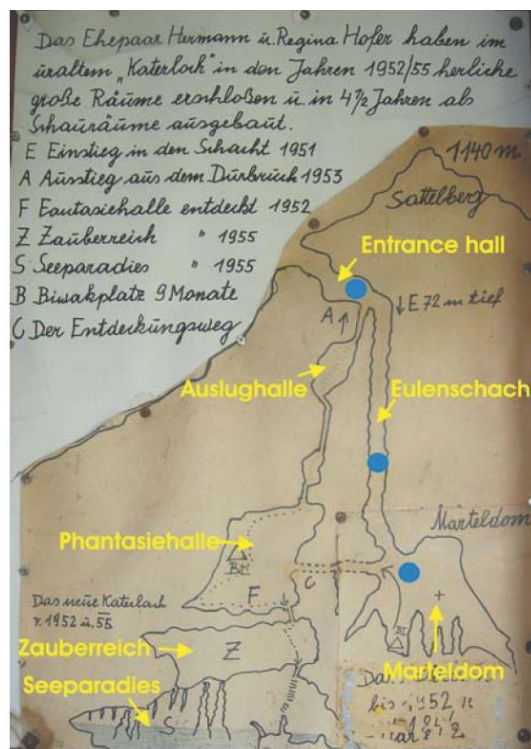 Das Ehepaar Hermann u. Regina Hofer haben im
uraltem „Katerloch" in den Jahren 1952/55 herliche
große Räume erschloßen u. in 4½ Jahren als
Schauräume ausgebaut.
E Einstieg in den Schacht 1951
A Ausstieg aus dem Durbruch 1953
F Fantasiehalle entdeckt 1952
Z Zauberreich " 1955
S Seeparadies " 1955
B Biwakplatz 9 Monate
C Der Entdeckungsweg
1140 m
Sattelberg
Entrance hall
A
↓ E 72 m tief
Auslughalle
Eulenschach
Marteldom
Phantasiehalle
F
C
Das neue Katerloch
v. 1952 u. 55
Zauberreich
Z
Marteldom
Seeparadies
bis 1952